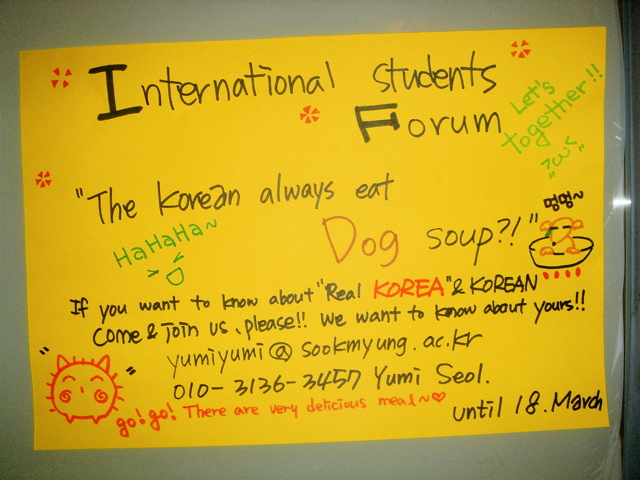 International students
Forum
Let's
together!!
"The Korean always eat
Dog soup?!"
멍멍~
HaHaHa~
If you want to know about "Real KOREA" & KOREAN
Come & Join us, please!! We want to know about yours!!
yumiyumi@sookmyung.ac.kr
010-3136-3457 Yumi Seol.
go! go! There are very delicious meal~♡
until 18. March